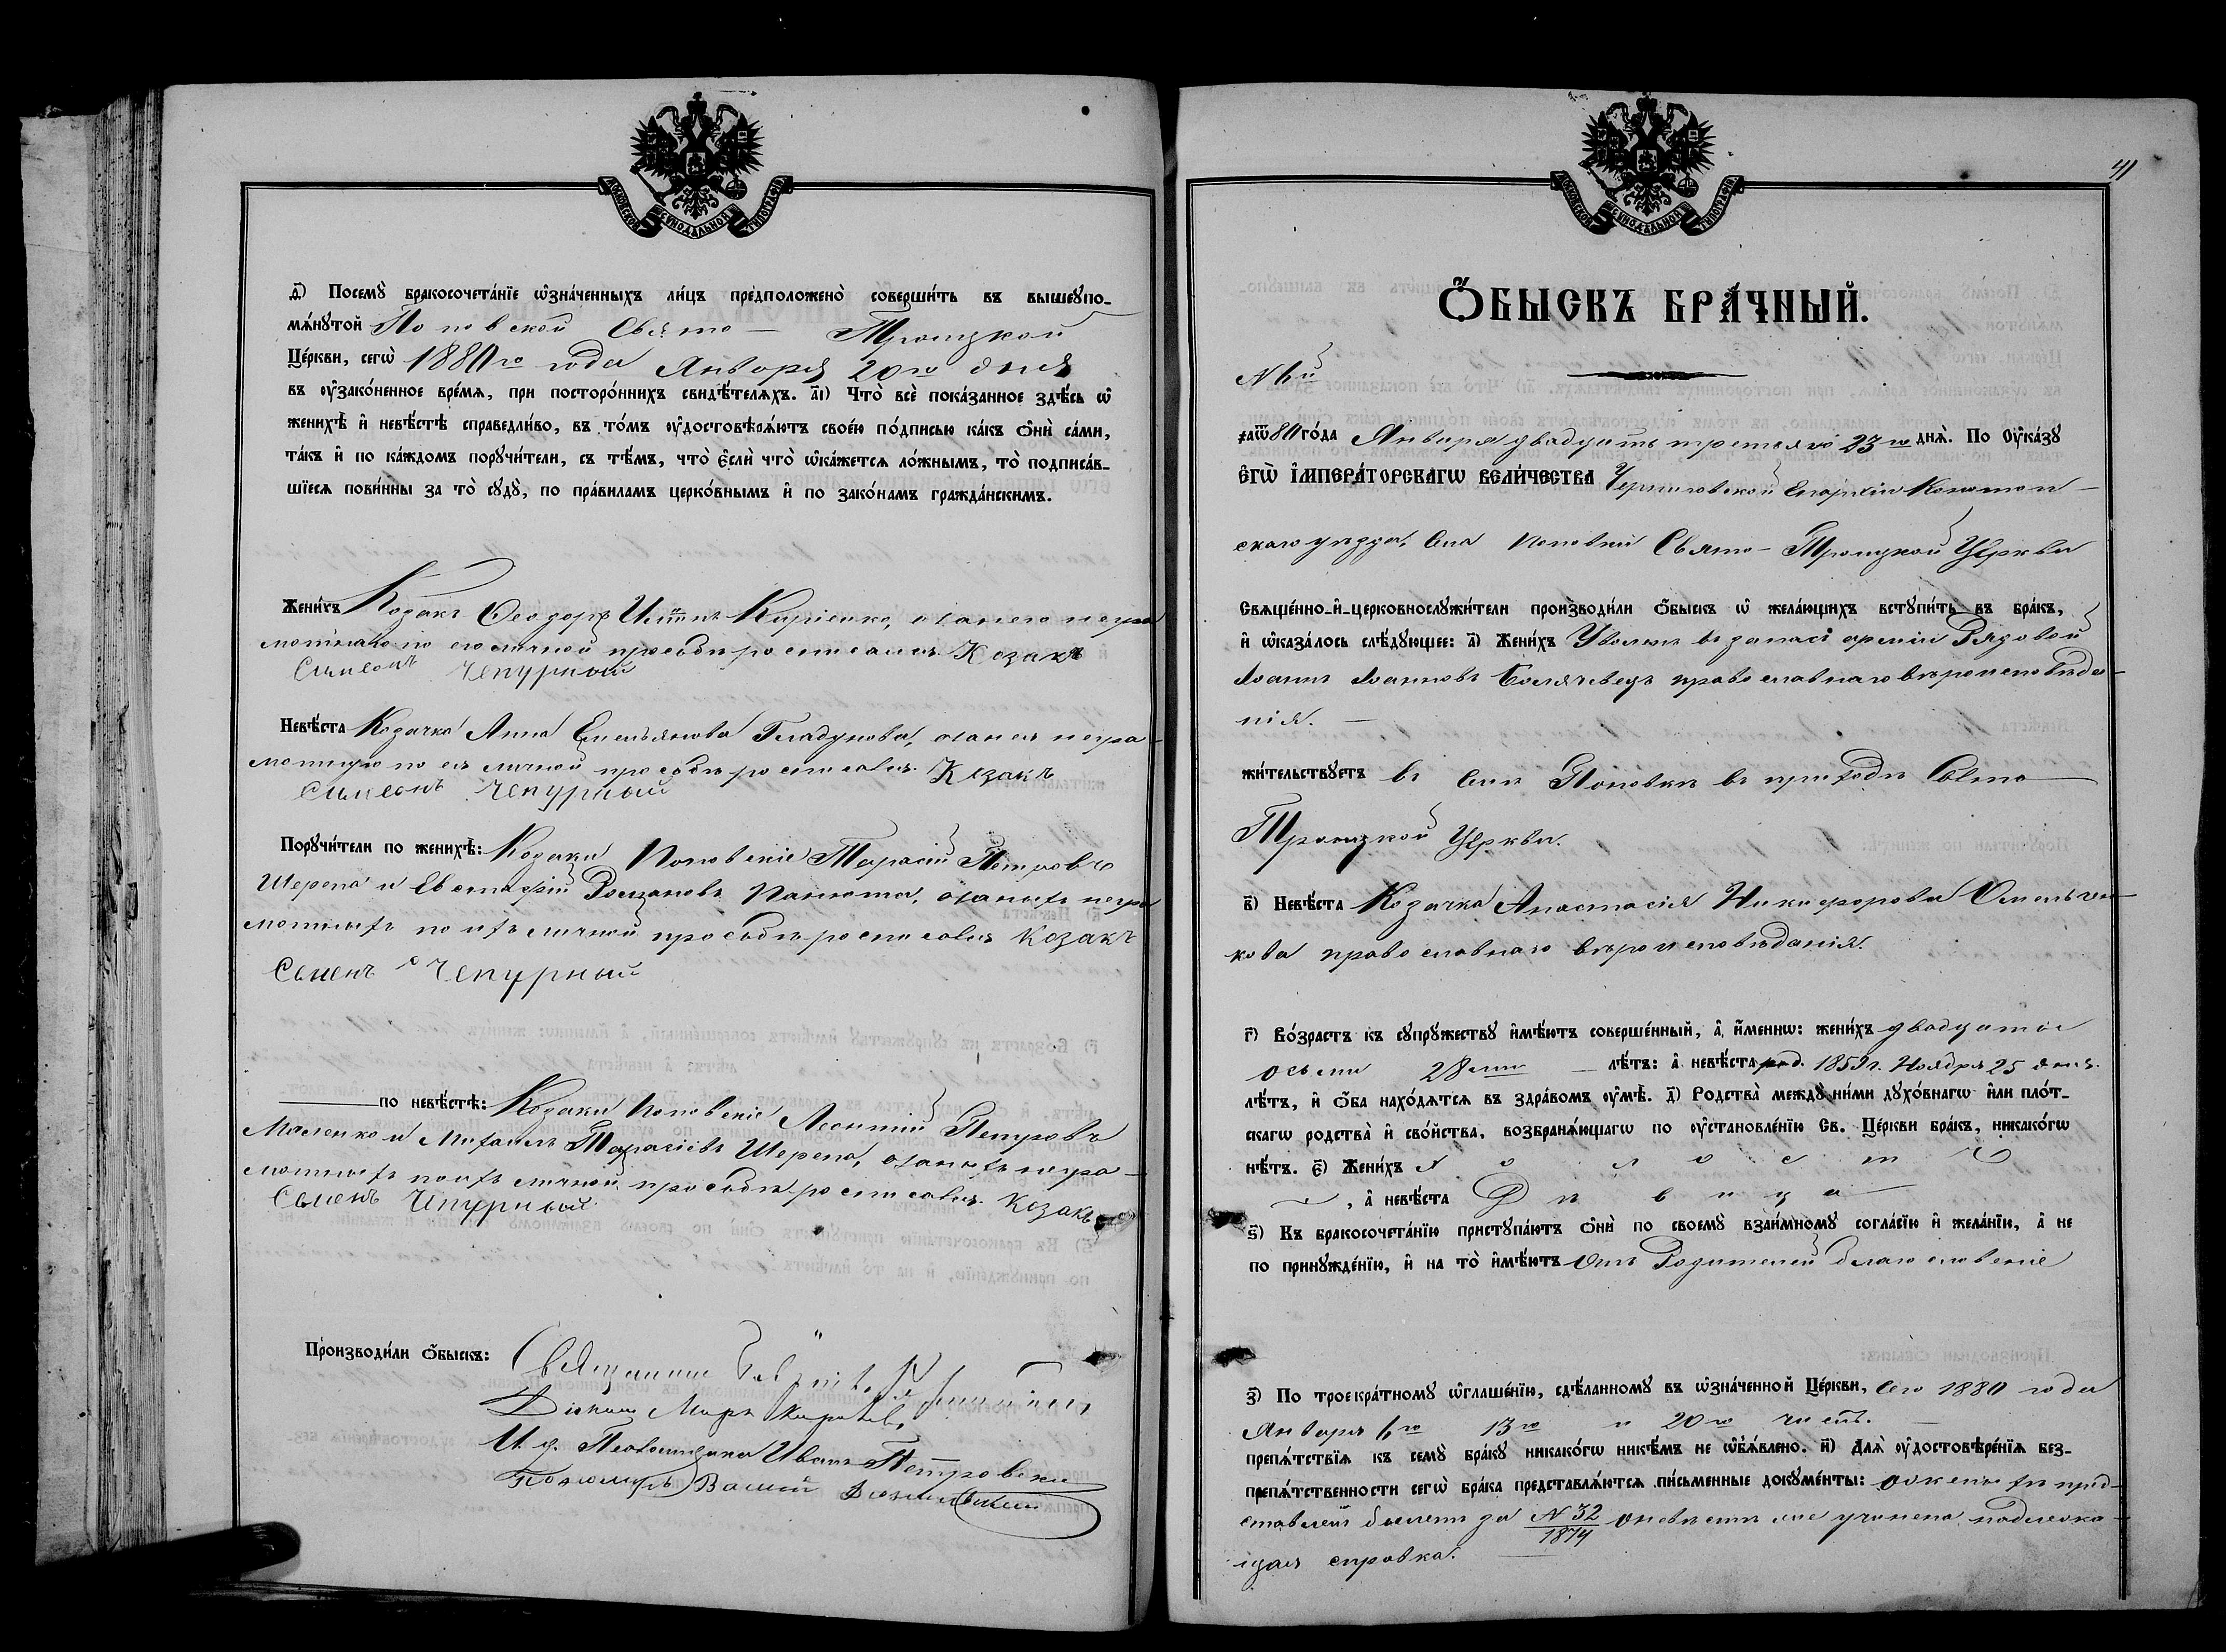 МОСКОВСКОЙ СѴНОДАЛЬНОЙ ТИПОГРАФІИ
і҃) Посемꙋ̀ бракосочета́нїе ѡ҆зна́ченныхъ ли́цъ предположено̀ соверши́ть въ вышеꙋпо-
мѧ́нꙋтой Поповской Свято — Троицкой
Це́ркви, сегѡ̀ 1880го года Января 20го дня
въ ᲂу҆зако́ненное вре́мѧ, при посторо́ннихъ свидѣ́телѧхъ. а҃і) Что̀ всѐ пока́занное здѣ́сь ѡ҆
женихѣ̀ и҆ невѣ́стѣ справедли́во, въ то́мъ ᲂу҆достовѣрѧ́ютъ свое́ю по́дписью ка́къ ѻ҆нѝ са́ми,
та́къ и҆ по ка́ждомъ порꙋчи́тели, съ тѣ́мъ, что̀ є҆́сли что̀ ѡ҆ка́жетсѧ ло́жнымъ, то̀ подписа́в-
шїесѧ пови́нны за то̀ сꙋдꙋ̀, по пра́виламъ церко́внымъ и҆ по зако́намъ гражда́нскимъ.
Жени́хъ Козакъ Ѳеодоръ Кириенко, а за него негра
мотнаго по его личной прозьбѣ росписался Козакъ
Симеонъ Чепурный
Невѣ́ста Козачка Анна Емельянова Гладунова, а за нея негра-
мотную по ея личной прозьбѣ росписался Козакъ
Симеонъ Чепурный
Порꙋчи́тели по женихѣ̀: Козаки Поповскіе Тарасій Петровъ
Шерепа и Евстафій Романовъ Панюта, а за нихъ негра
мотныхъ по ихъ личной прозьбѣ росписался козакъ
Семенъ Чепурный
по невѣ́стѣ: Козаки Поповскіе Леонтій Петровъ
Масленко и Михаилъ Тарасіевъ Шерепа, а за нихъ негра-
мотныхъ по ихъ личной прозьбѣ росписался козакъ
Семенъ Чепурный
Производи́ли ѻ҆́быскъ: Священникъ
Діаконъ Маркъ
И. д. Псаломщика Иванъ Петровски
Пономарь
41
МОСКОВСКОЙ СѴНОДАЛЬНОЙ ТИПОГРАФІИ
Ѻ҆́БЫСКЪ БРА́ЧНЫЙ.
N 6й
҂аѿ80 го́да Января двадцать третьяго 23го днѧ̀. По Оу҆ка́зꙋ
Є҆ГѠ̀ И҆МПЕРА́ТОРСКАГѠ ВЕЛИ́ЧЕСТВА Черниговской Епархіи Конотоп-
скаго уѣзда, Села Поповки Свято-Троицкой Церкви
Свѧще́нно-и҆-церковнослꙋжи́тели производи́ли ѻ҆́быскъ ѡ҆ жела́ющихъ встꙋпи́ть въ бра́къ,
и҆ ѡ҆каза́лось слѣ́дꙋющее: а҃) Жени́хъ Уволенъ въ запасъ арміи Рядовой
Іоаннъ Іоанновъ православнаго вѣроисповѣда-
нія. —
жи́тельствꙋетъ въ Селѣ Поповкѣ въ приходѣ Свято
Троицкой Церкви.
в҃) Невѣ́ста Козачка Анастасія Никифорова Омельчен-
кова православнаго вѣроисповѣданія.
г҃) Во́зрастъ къ сꙋпрꙋ́жествꙋ и҆мѣ́ютъ соверше́нный, а҆ и҆́меннѡ: жени́хъ двадцати
осьми 28ми — лѣ́тъ: а҆ невѣ́ста род. 1859г. Ноября 25 дня.
лѣ́тъ, и҆ ѻ҆́ба нахо́дѧтсѧ въ здра́вомъ ᲂу҆мѣ̀. д҃) Родства̀ междꙋ̀ ни́ми дꙋхо́внагѡ и҆лѝ пло́т-
скагѡ родства̀ и҆ сво́йства, возбранѧ́ющагѡ по ᲂу҆становле́нїю Св. Це́ркви бра́къ, никако́гѡ
нѣ́тъ. є҃) Жени́хъ Холостъ
, а҆ невѣ́ста Дѣвица
ѕ҃) Къ бракосочета́нїю пристꙋпа́ютъ ѻ҆нѝ по своемꙋ̀ взаи́мномꙋ согла́сїю и҆ жела́нїю, а҆ не
по принꙋжде́нїю, и҆ на то̀ и҆мѣ́ютъ Отъ Родителей благословеніе
з҃) По троекра́тномꙋ ѡ҆глаше́нїю, сдѣ́ланномꙋ въ ѡ҆зна́ченной Це́ркви, Сего 1880 года
Января 6го 13го и 20го числъ. —
препѧ́тствїѧ къ семꙋ̀ бра́кꙋ никако́гѡ никѣ́мъ не ѡ҆б̾ѧ́влено. и҃) Длѧ̀ ᲂу҆достовѣре́нїѧ без-
препѧ́тственности сегѡ̀ бра́ка представлѧ́ютсѧ пи́сьменные докꙋме́нты: о женихѣ пред-
ставленъ билетъ за N 32/1874 о невѣстѣ же учинена подлежа-
щая справка.